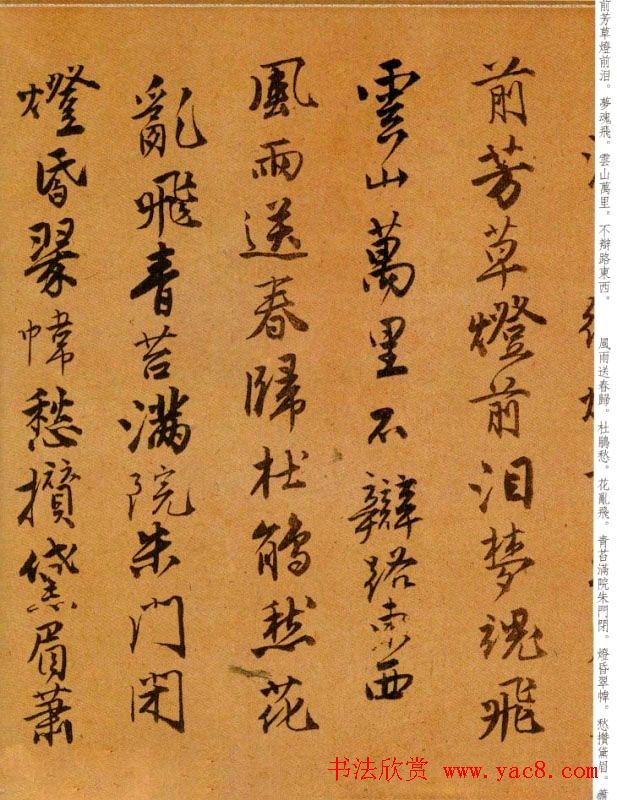 前芳草燈前泪。夢魂飛。雲山萬里。不辯路東西。 風雨送春歸。杜鵑愁。花亂飛。青苔滿院朱門閉。燈昏翠幃。愁攢黛眉。蕭
前芳草燈前泪夢魂飛
雲山萬里不辯路東西
風雨送春歸杜鵑愁花
亂飛青苔满院朱門閉
燈昏翠幃愁攢黛眉蕭
书法欣赏 www.yac8.com